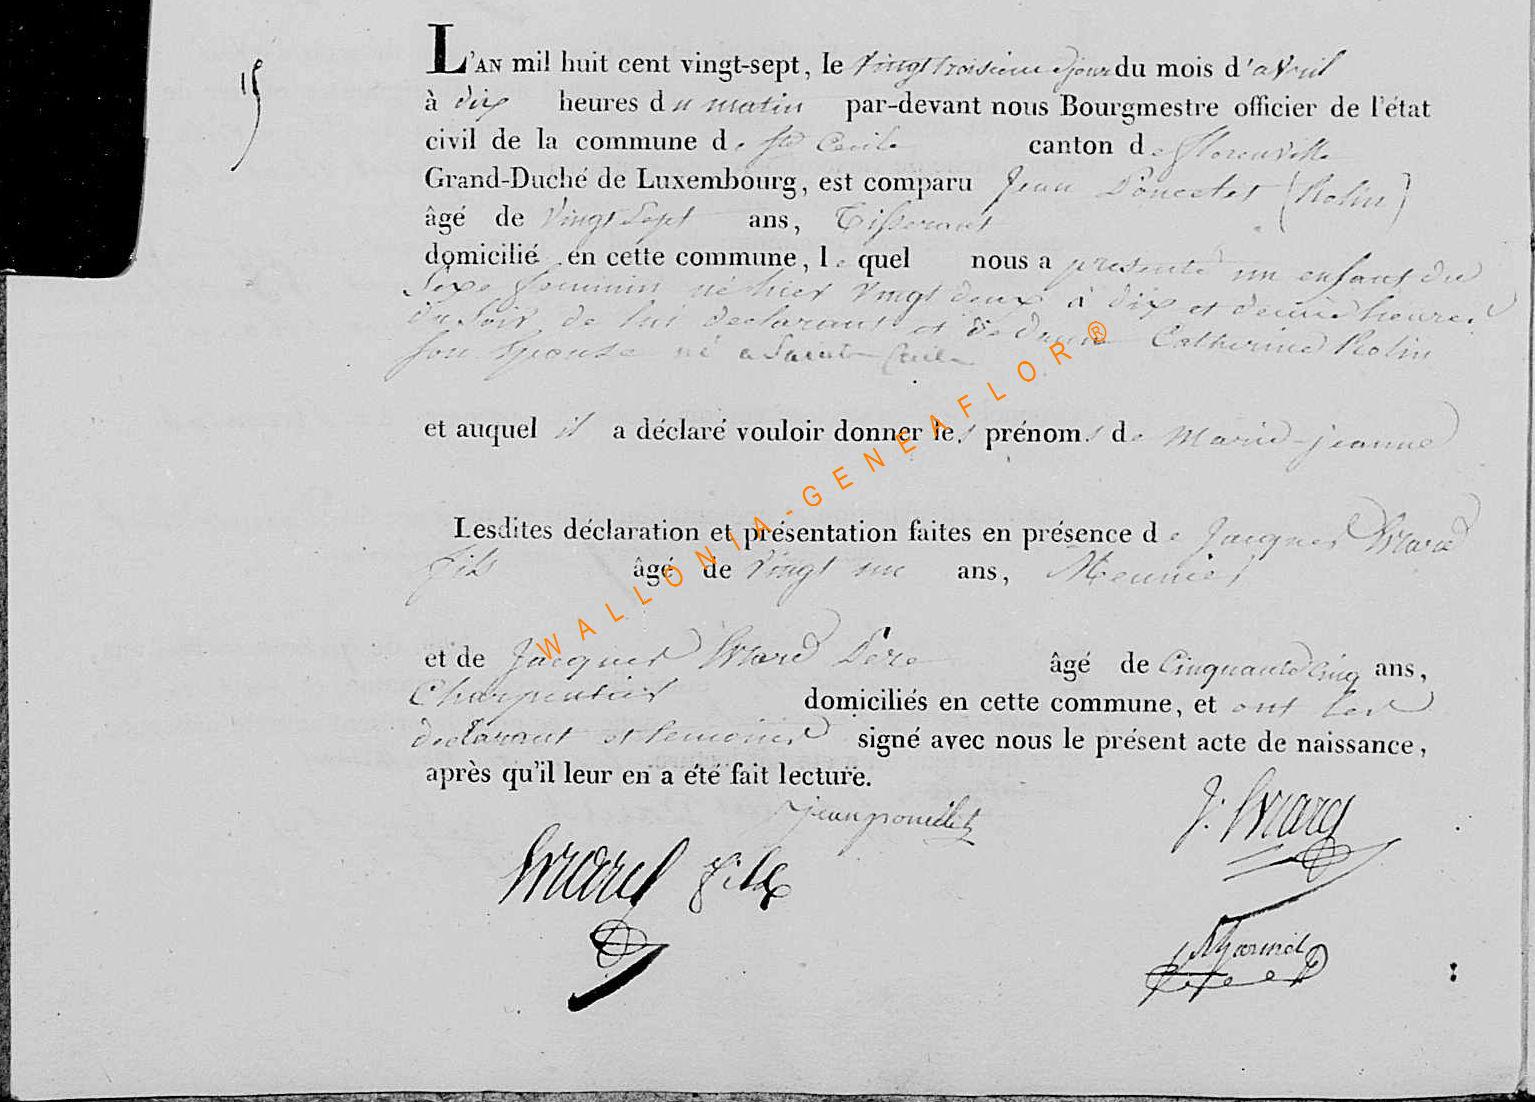 15
L'AN mil huit cent vingt-sept, le vingt troisieme jour du mois d'avril
à dix heures du matin par-devant nous Bourgmestre officier de l'état
civil de la commune de Ste Cecile canton de florenville
Grand-Duché de Luxembourg, est comparu Jean Poncelet (Rolin)
âgé de vingt Sept ans, Tisserant
domicilié en cette commune, lequel nous a presenté un enfant du
Sexe feminin né hier vingt deux à dix et demie heures
du Soir de lui declarant et de dame Catherine Rolin
son Epouse né a Sainte Cecile
et auquel il a déclaré vouloir donner les prénoms de Marie-jeanne
Lesdites déclaration et présentation faites en présence de Jacques
fils âgé de vingt ans, Meunier
et de Jacques Pere âgé de Cinquante Cinq ans,
Charpentier domiciliés en cette commune, et ont les
declarant et temoins signé avec nous le présent acte de naissance,
après qu'il leur en a été fait lecture.
jean poncelet
J.
fils
WALLONIA-GENEAFLOR®